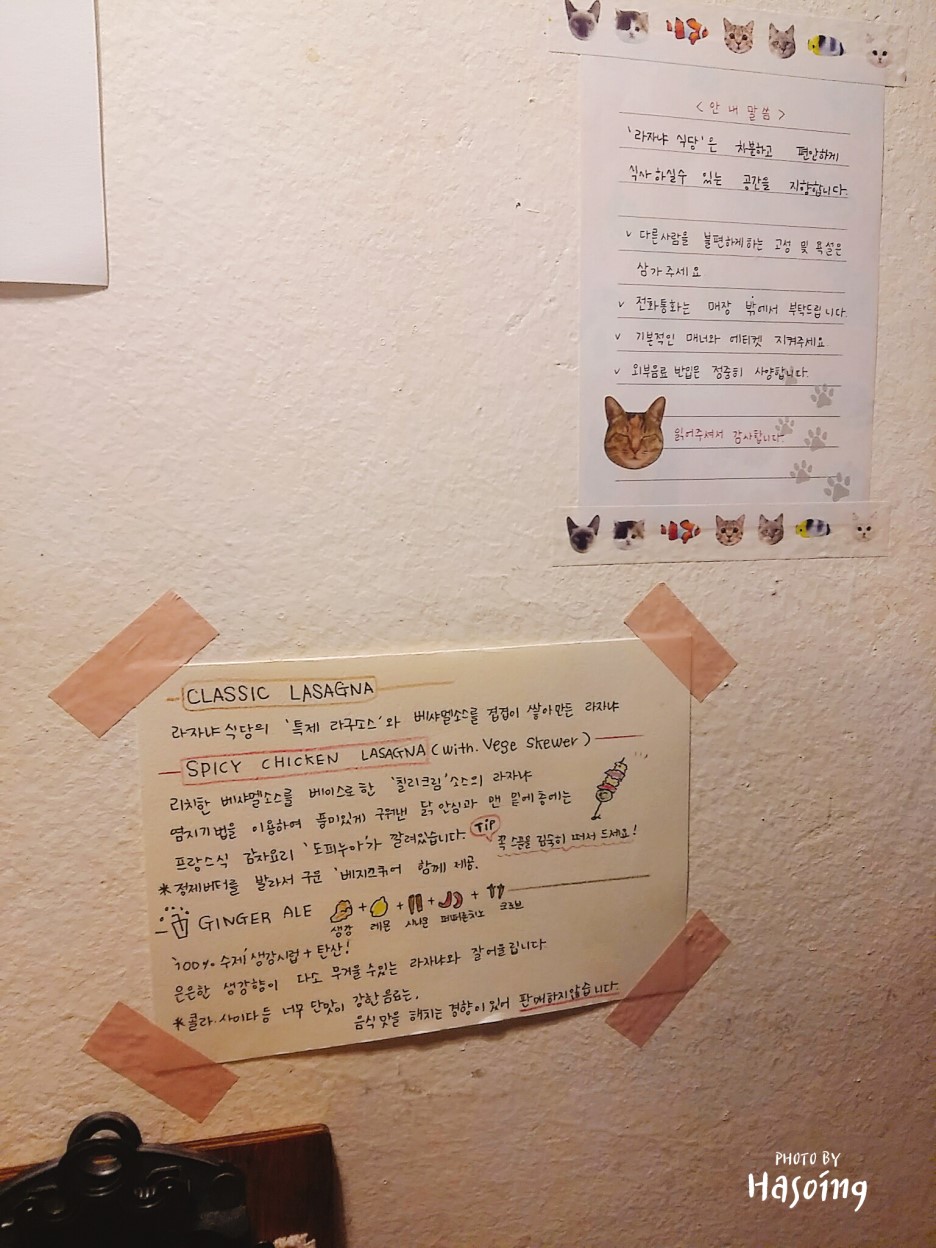 < 안 내 말 씀 >
'라자냐 식당'은 차분하고 편안하게
식사 하실수 있는 공간을 지향합니다.
✓ 다른사람을 불편하게하는 고성 및 욕설은
삼가 주세요
✓ 전화통화는 매장 밖에서 부탁드립니다.
✓ 기본적인 매너와 에티켓 지켜주세요.
✓ 외부음료 반입은 정중히 사양합니다.
읽어주셔서 감사합니다
CLASSIC LASAGNA
라자냐 식당의 '특제 라구소스'와 베샤멜소스를 겹겹이 쌓아만든 라자냐
SPICY CHICKEN LASAGNA (with. Vege skewer)
리치한 베샤멜소스를 베이스로한 '칠리크림'소스의 라자냐
염지기법을 이용하여 풍미있게 구워낸 닭 안심과 맨 밑에 층에는
프랑스식 감자요리 '도피누아'가 깔려있습니다. TiP 꼭 스푼을 깊숙히 떠서 드세요!
*정제버터를 발라서 구운 '베지스큐어' 함께 제공.
GINGER ALE + + + +
생강 레몬 시나몬 페퍼론치노 크로브
'100% 수제' 생강시럽 + 탄산!
은은한 생강향이 다소 무거울 수있는 라자냐와 잘어울립니다
*콜라·사이다 등 너무 단맛이 강한 음료는,
음식 맛을 해치는 경향이 있어 판매하지않습니다
PHOTO BY
Hasoing